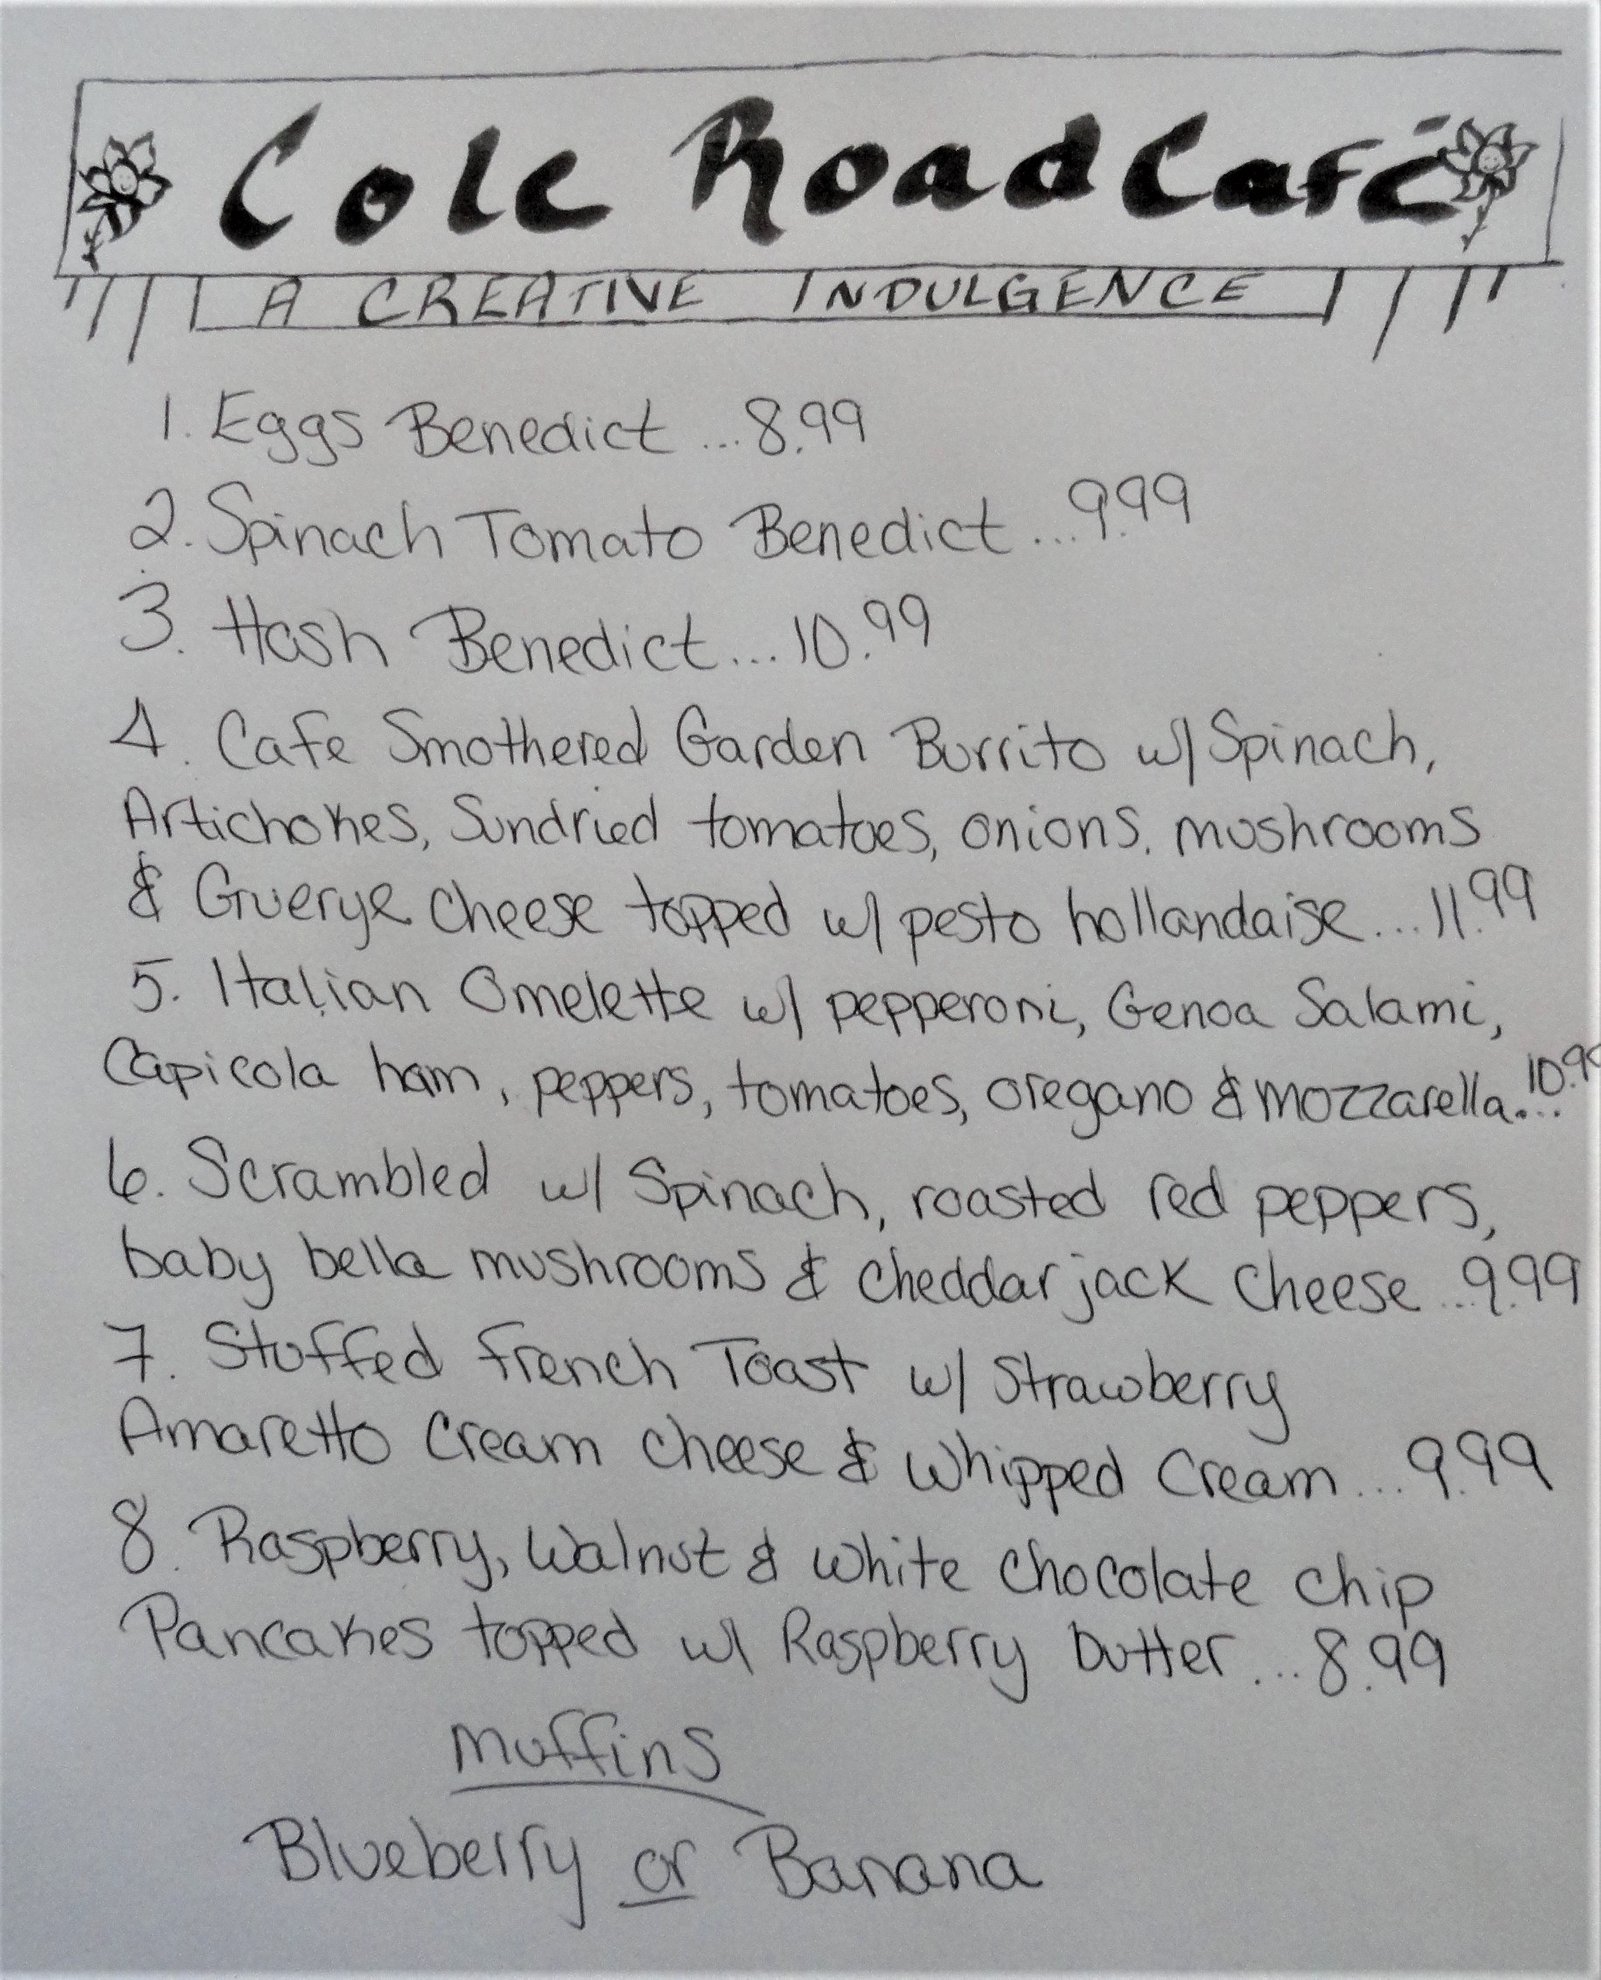 Cole Road Café
A CREATIVE INDULGENCE
1. Eggs Benedict ... 8.99
2. Spinach Tomato Benedict ... 9.99
3. Hash Benedict ... 10.99
4. Cafe Smothered Garden Burrito w/ Spinach,
Artichokes, Sundried tomatoes, onions, mushrooms
& Gruerye cheese topped w/ pesto hollandaise ... 11.99
5. Italian Omelette w/ pepperoni, Genoa Salami,
Capicola ham, peppers, tomatoes, oregano & mozzarella... 10.99
6. Scrambled w/ Spinach, roasted red peppers,
baby bella mushrooms & cheddar jack cheese ... 9.99
7. Stuffed French Toast w/ Strawberry
Amaretto Cream cheese & Whipped Cream ... 9.99
8. Raspberry, Walnut & White Chocolate Chip
Pancakes topped w/ Raspberry butter ... 8.99
muffins
Blueberry or Banana